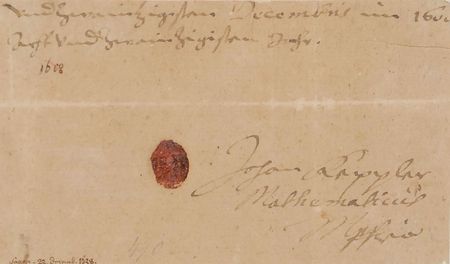 undzweintzigisten Decembris im 1600
Acht undzweintzigisten Jahr.
1608
Johan Keppler
Mathematicus
Mppria